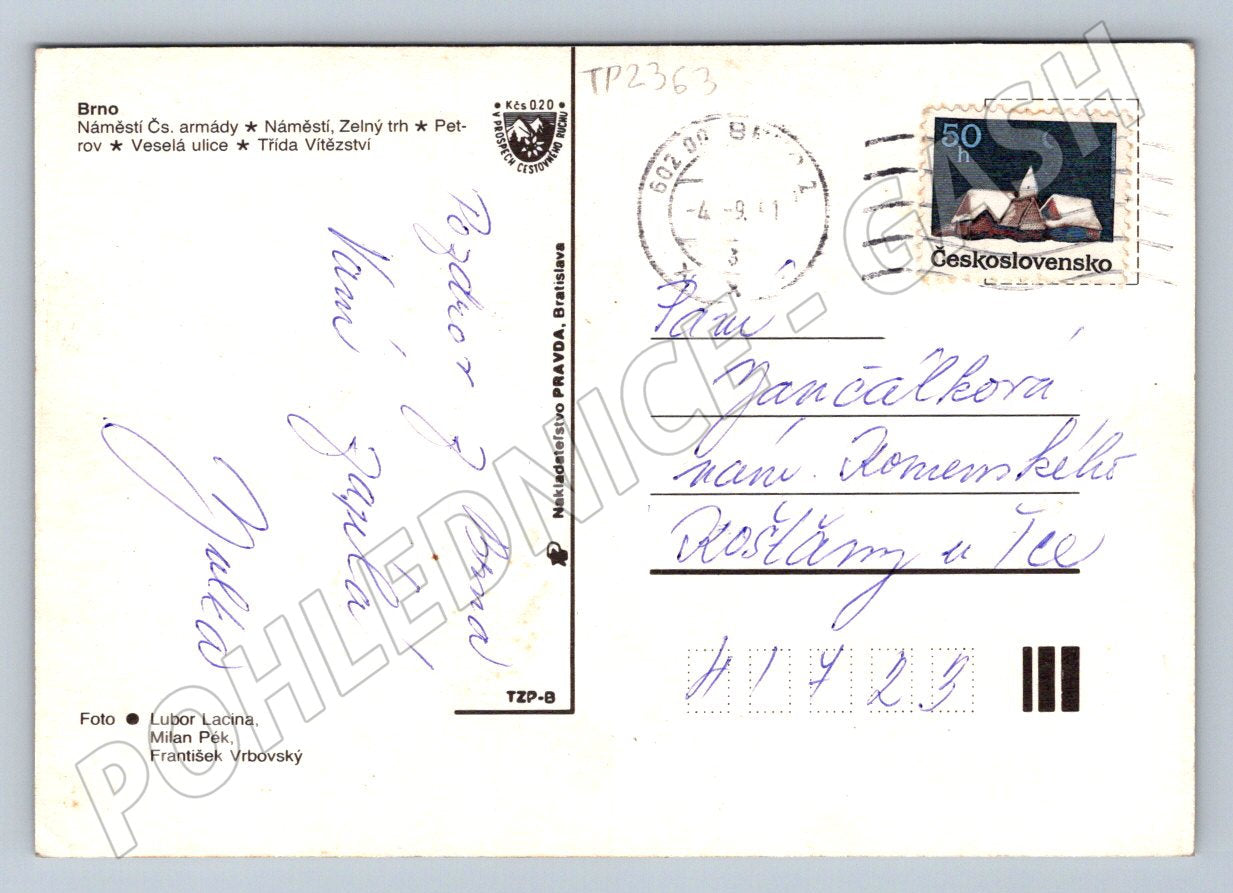 TP2363
Brno
Náměstí Čs. armády ★ Náměstí, Zelný trh ★ Pet-
rov ★ Veselá ulice ★ Třída Vítězství
• Kčs 0.20 •
V PROSPECH CESTOVNÉHO RUCHU
602 00 BRNO 2
-4.-9.
50
h
Československo
Pozdrav z Brna
Vám
Nakladateľstvo PRAVDA, Bratislava
Paní
Jančálková
nám. Komenského
Košťany u Tce
41723
TZP-B
Foto ● Lubor Lacina,
Milan Pék,
František Vrbovský
POHLEDNICE - GASH